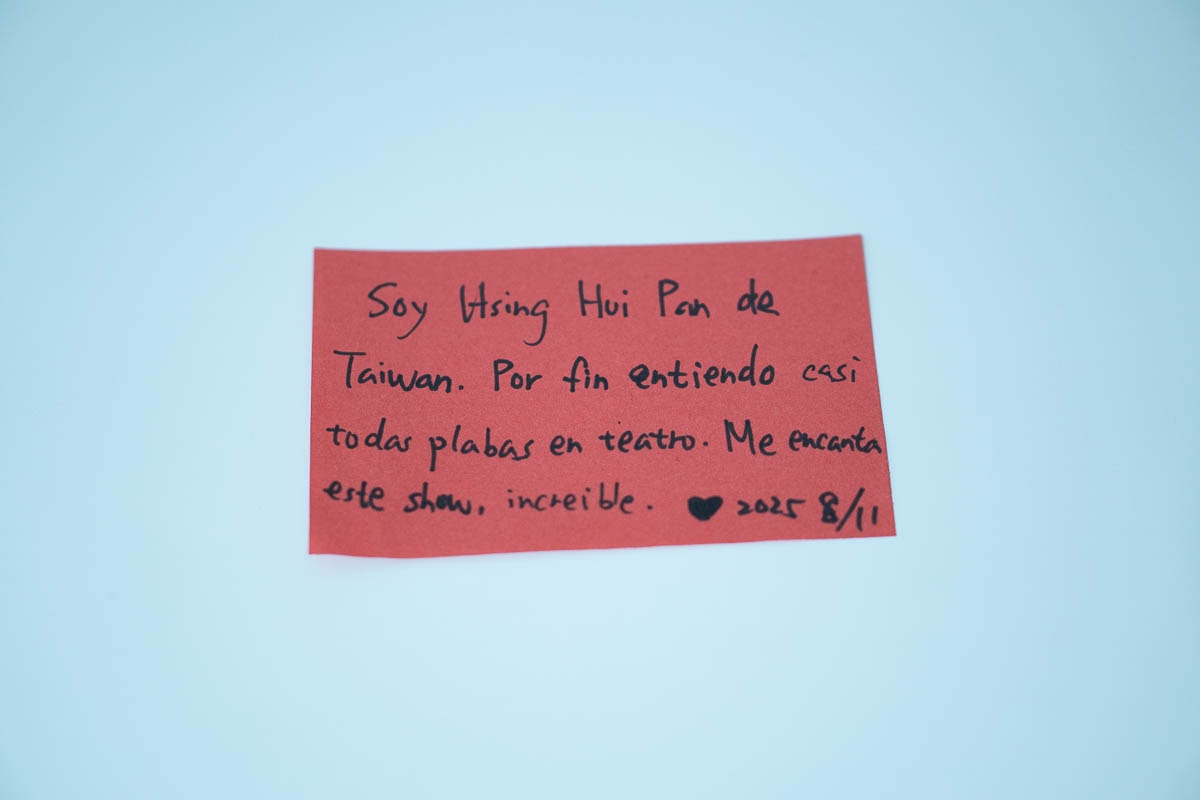 Soy Hsing Hui Pan de
Taiwan. Por fin entiendo casi
todas plabas en teatro. Me encanta
este show, increible. ♥ 2025 8/11